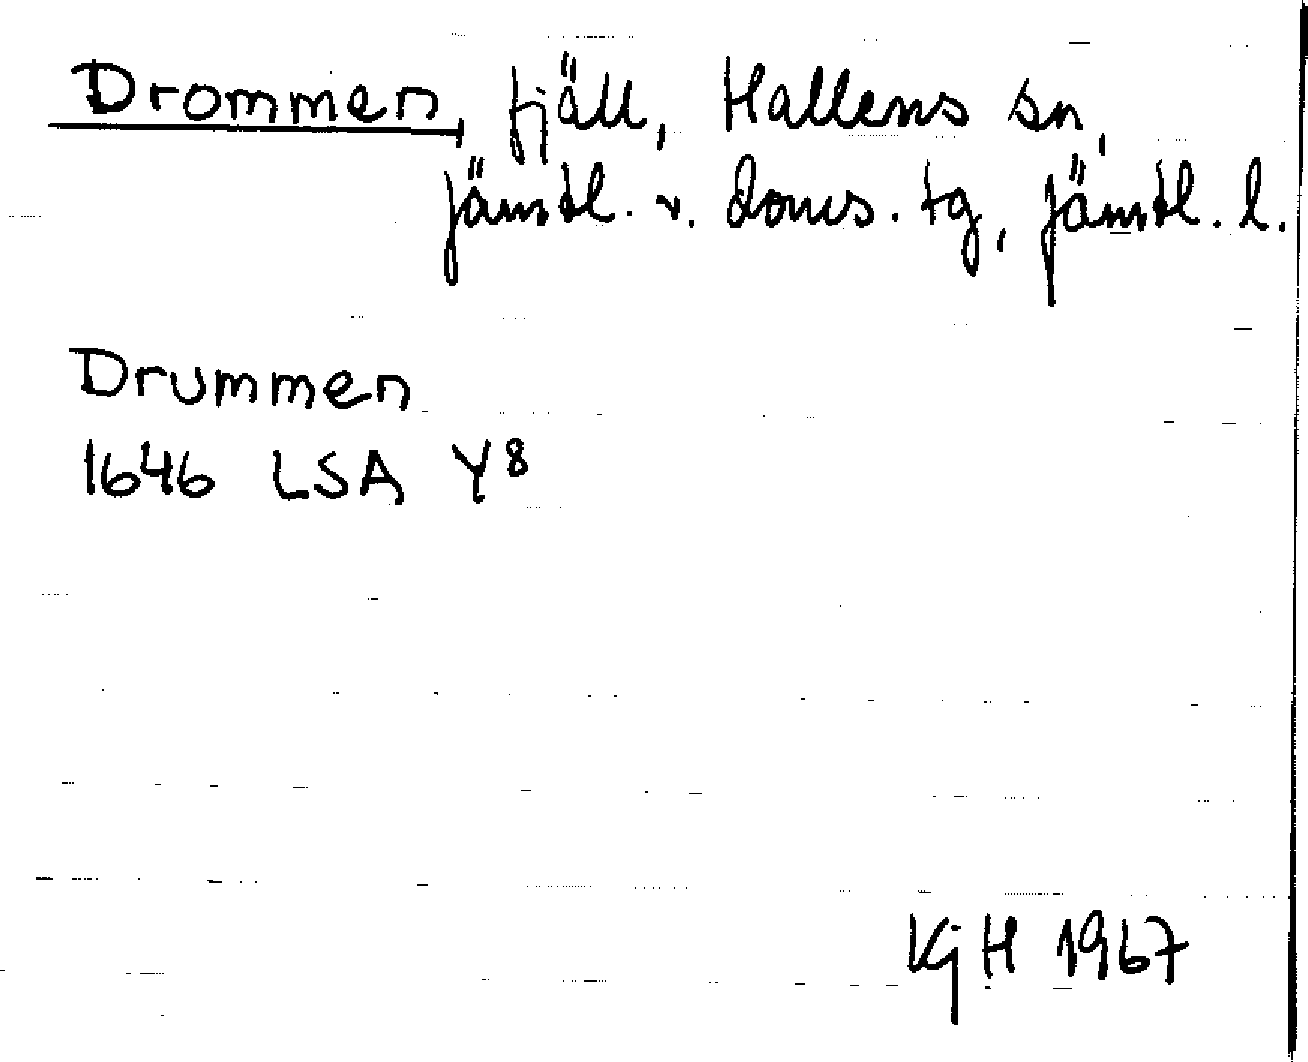 Drommen, fjäll, Hallens sn,
Jämtl. v. doms. tg, Jämtl. l.
Drummen
1646 LSA Y8
KGH 1967